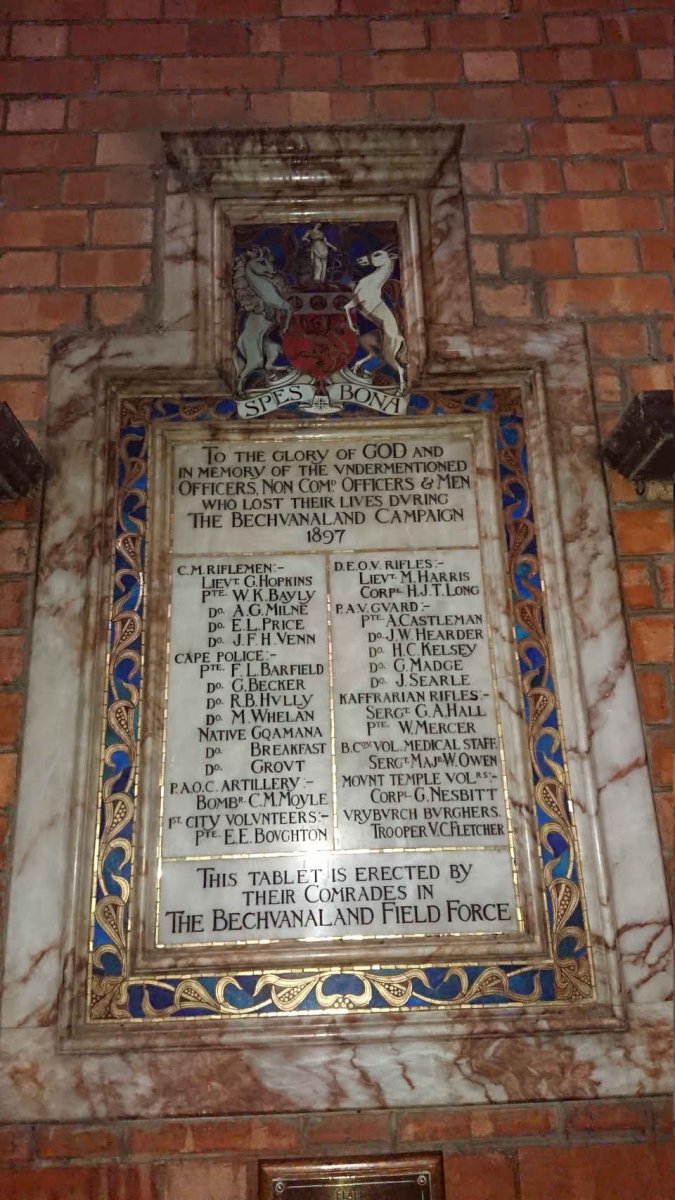 SPES BONA
TO THE GLORY OF GOD AND
IN MEMORY OF THE VNDERMENTIONED
OFFICERS, NON COMD. OFFICERS & MEN
WHO LOST THEIR LIVES DVRING
THE BECHVANALAND CAMPAIGN
1897
C.M. RIFLEMEN:-
LIEVT. G. HOPKINS
PTE. W.K. BAYLY
DO. A.G. MILNE
DO. E.L. PRICE
DO. J.F.H. VENN
CAPE POLICE:-
PTE. F.L. BARFIELD
DO. G. BECKER
DO. R.B. HVLLY
DO. M. WHELAN
NATIVE GQAMANA
DO. BREAKFAST
DO. GROVT
P.A.O.C. ARTILLERY:-
BOMBR. C.M. MOYLE
1ST. CITY VOLVNTEERS:-
PTE. E.E. BOVGHTON
D.E.O.V. RIFLES:-
LIEVT. M. HARRIS
CORPL. H.J.T. LONG
P.A.V. GVARD:-
PTE. A. CASTLEMAN
DO. J.W. HEARDER
DO. H.C. KELSEY
DO. G. MADGE
DO. J. SEARLE
KAFFRARIAN RIFLES:-
SERGT. G.A. HALL
PTE. W. MERCER
VOL. MEDICAL STAFF.
SERGT. MAJR. W. OWEN
MOVNT TEMPLE VOLRS:-
CORPL. G. NESBITT
VRYBVRCH BVRGHERS.
TROOPER V.C. FLETCHER
THIS TABLET IS ERECTED BY
THEIR COMRADES IN
THE BECHVANALAND FIELD FORCE